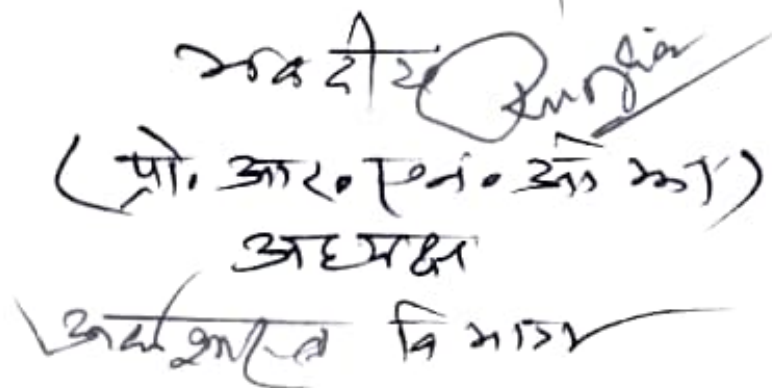 भवदीय
(प्रो. आर. एन. ओझा)
अध्यक्ष
अर्थशास्त्र विभाग